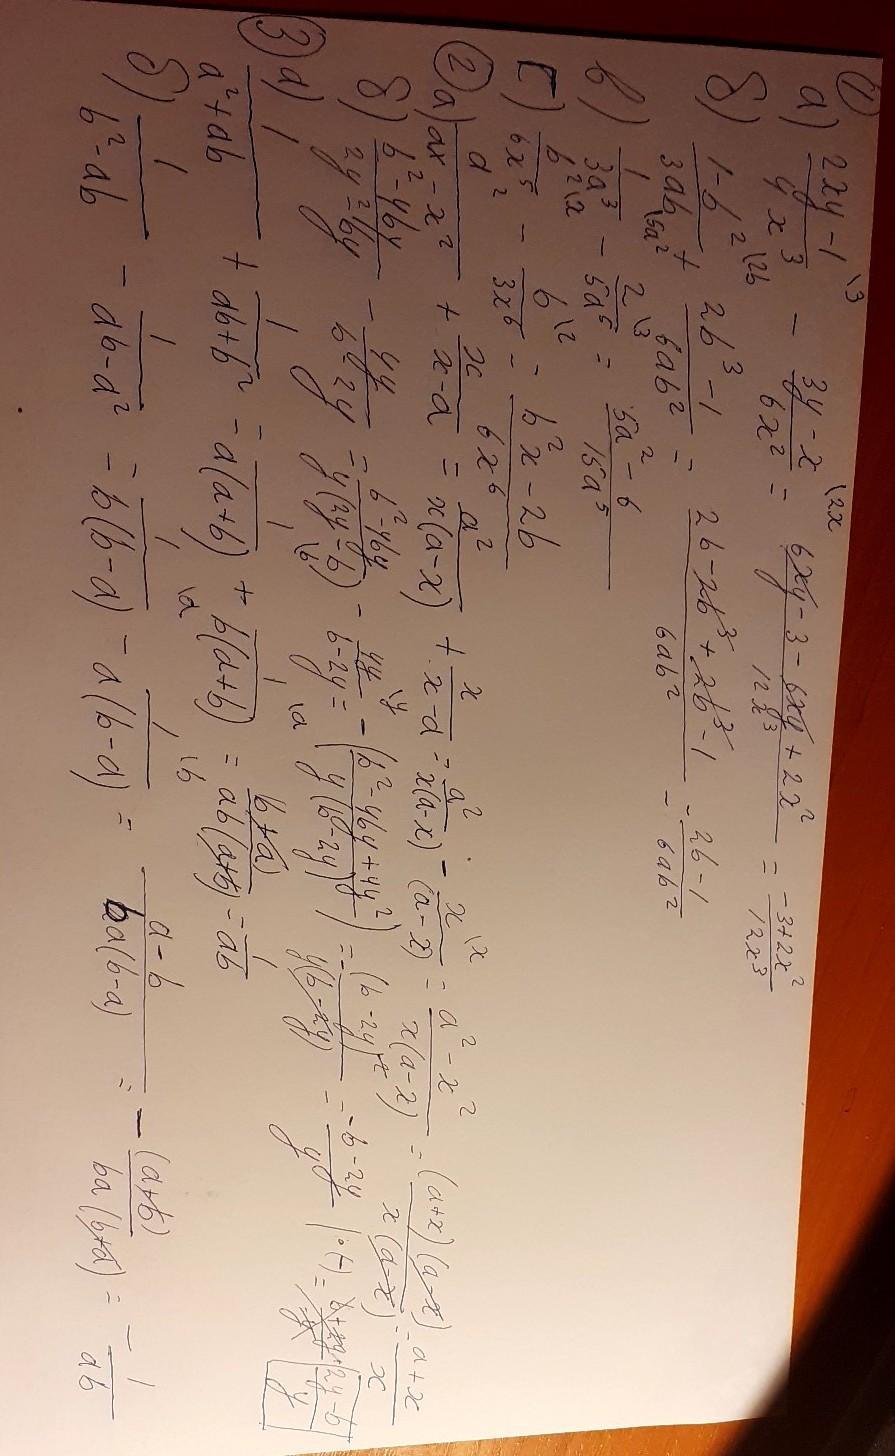 ①
а) (2xy-1)/(4x³) \3 - (3y-x)/(6x²) \2x = (6xy-3-6xy+2x²)/(12x³) = (-3+2x²)/(12x³)
б) (1-b²)/(3ab) \2b + (2b³-1)/(6ab²) = (2b-2b³+2b³-1)/(6ab²) = (2b-1)/(6ab²)
в) 1/(3a³) \5a² - 2/(5a⁵) \3 = (5a²-6)/(15a⁵)
г) b²/(6x⁵) \x - b/(3x⁶) \2 = (b²x-2b)/(6x⁶)
② а) a²/(ax-x²) + x/(x-a) = a²/(x(a-x)) + x/(x-a) = a²/(x(a-x)) - x/(a-x) \x = (a²-x²)/(x(a-x)) = (a+x)(a-x)/(x(a-x)) = (a+x)/x
б) (b²-4by)/(2y²-by) - 4y/(b-2y) = (b²-4by)/(y(2y-b)) - 4y/(b-2y) \y = -(b²-4by+4y²)/(y(b-2y)) = -(b-2y)²/(y(b-2y)) = -(b-2y)/y = (2y-b)/y
③ а) 1/(a²+ab) + 1/(ab+b²) = 1/(a(a+b)) \b + 1/(b(a+b)) \a = (b+a)/(ab(a+b)) = 1/ab
б) 1/(b²-ab) - 1/(ab-a²) = 1/(b(b-a)) \a - 1/(a(b-a)) \b = (a-b)/(ba(b-a)) = -(a+b)/(ba(b+a)) = -1/ab